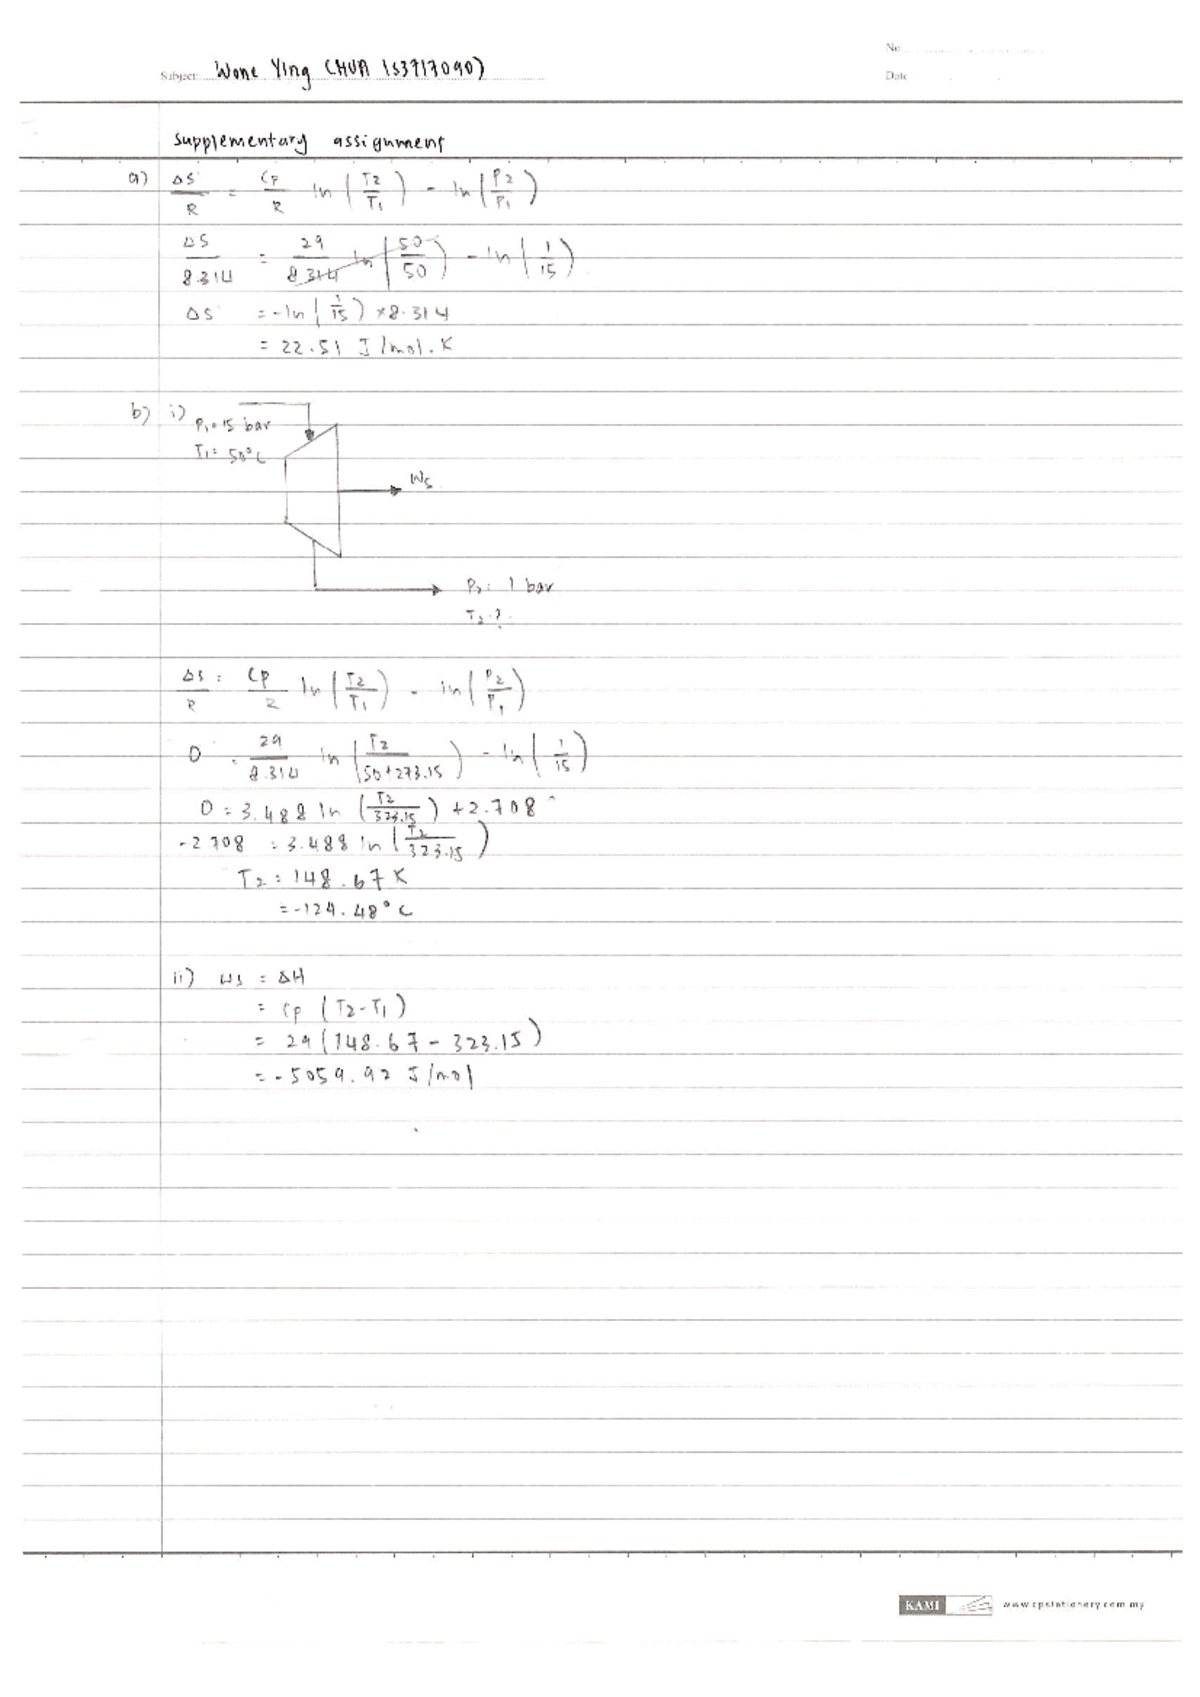 No:
Subject: Wone Ying CHUA (S3717090)
Date
Supplementary assignment
a) ΔS/R = Cp/R ln(T2/T1) - ln(P2/P1)
ΔS/8.314 = 29/8.314 ln(50/50) - ln(1/15)
ΔS = -ln(1/15) × 8.314
= 22.51 J/mol.K
b) i) P1 = 15 bar
T1 = 50°C
Ws
P2 = 1 bar
T2 = ?
ΔS/R = Cp/R ln(T2/T1) - ln(P2/P1)
0 = 29/8.314 ln(T2/(50+273.15)) - ln(1/15)
0 = 3.488 ln(T2/323.15) + 2.708
-2.708 = 3.488 ln(T2/323.15)
T2 = 148.67 K
= -124.48°C
ii) Ws = ΔH
= Cp (T2-T1)
= 29(148.67 - 323.15)
= -5059.92 J/mol
KAMI www.cpstationery.com.my